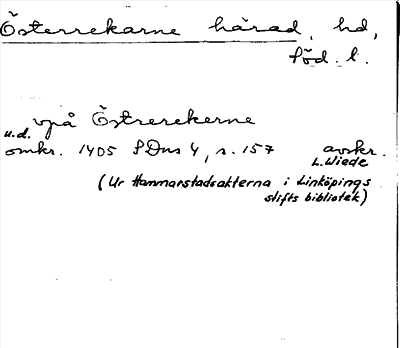 Österrekarne härad, hd,
Söd. l.
vpå Östrerekerne
u.d.
omkr. 1405 SDns 4, s. 157 avskr.
L. Wiede
(Ur Hammarstadsakterna i Linköpings
stifts bibliotek)